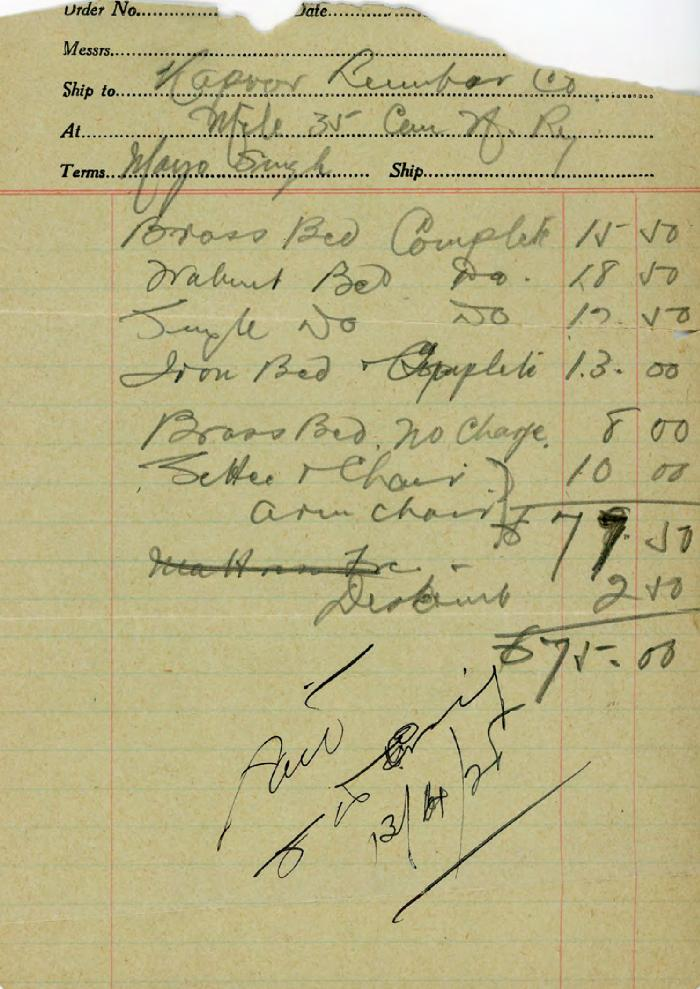 Order No. Date
Messrs.
Ship to Kapoor Lumber Co
At Mile 35 Can N. Ry
Terms Mayo Singh Ship
Brass Bed Complete 15 50
Walnut Bed Do. 18 50
Single Do Do 12 50
Iron Bed Complete 13. 00
Brass Bed. No Charge. 8 00
Settee & Chair } 10 00
arm chair $77.50
Mattress
Discount 2 50
$75.00
Paid
13/4/25